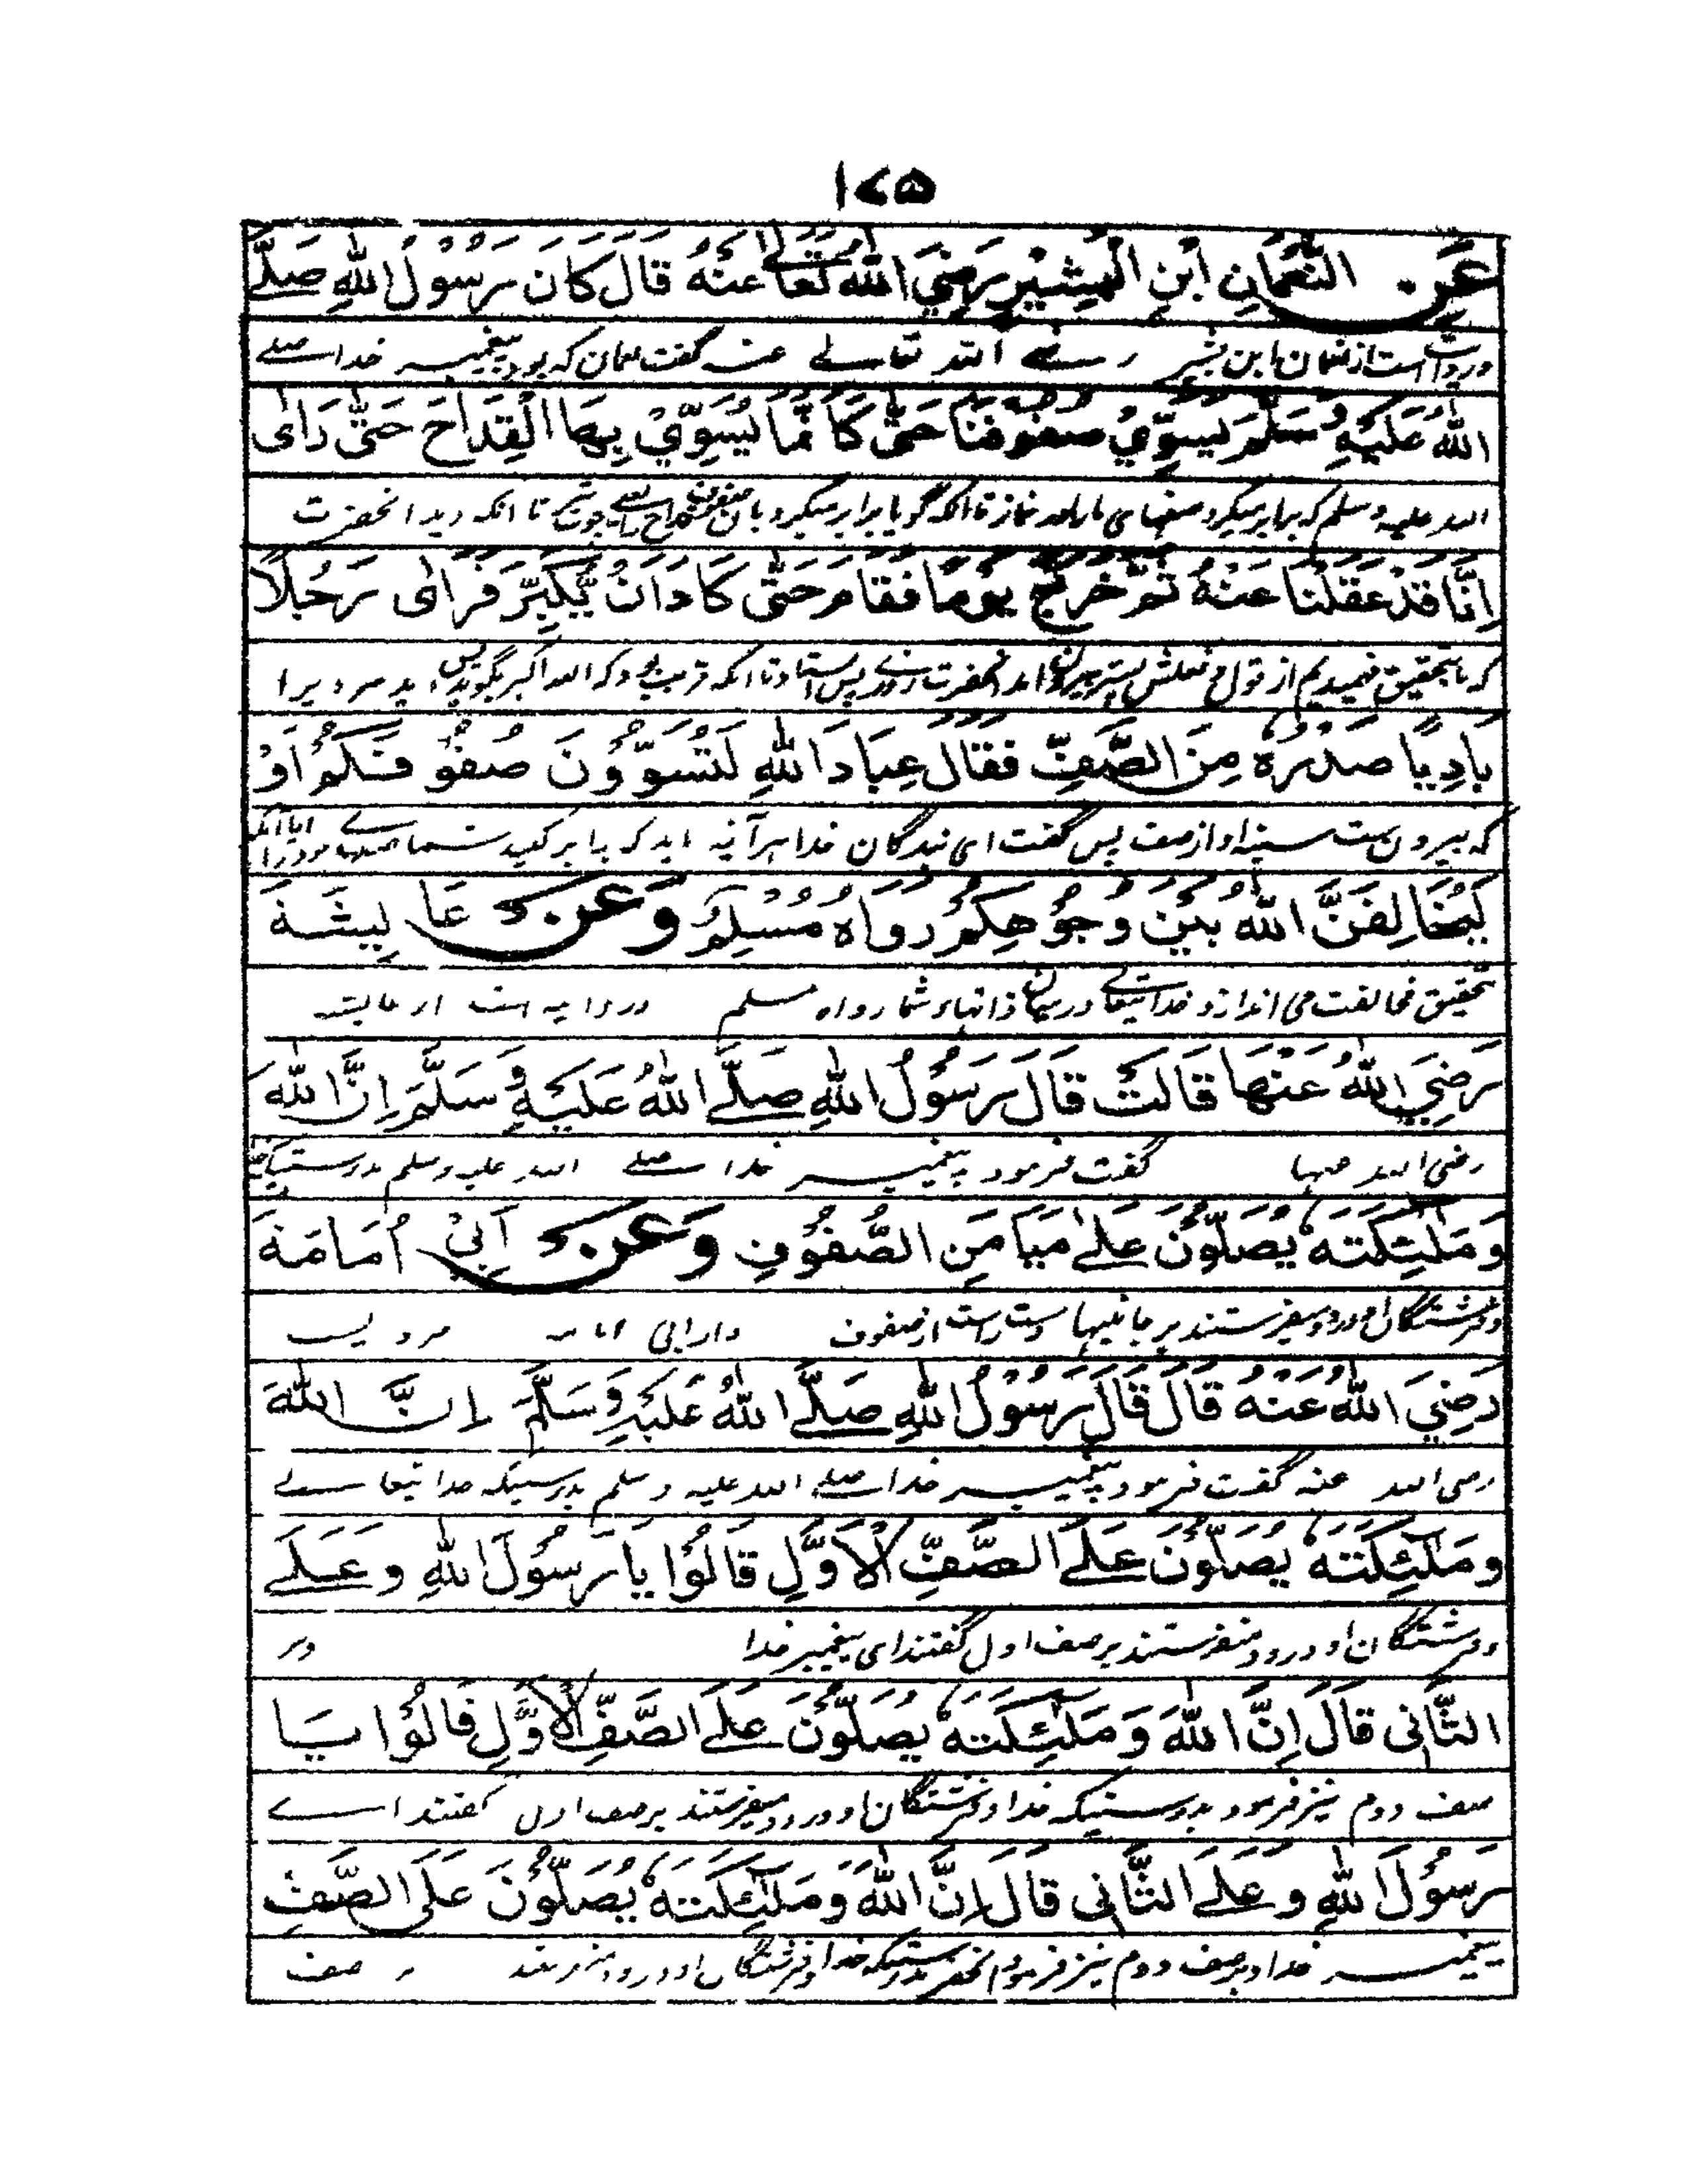 ١٧۵
عَن النُّعْمَانِ ابْنِ الْبَشِيْرِ رَضِيَ اللّٰهُ تَعَالٰى عَنْهُ قَالَ كَانَ رَسُوْلُ اللّٰهِ صَلَّے
وروایت است از نعمان ابن بشیر رضے اللہ تعالے عنہ گفت نعمان کہ بود پیغمبر خدا صلے
اللّٰهُ عَلَيْهِ وَسَلَّمَ يُسَوِّيْ صُفُوْفَنَا حَتّٰى كَاَنَّمَا يُسَوِّيْ بِهَا الْقِدَاحَ حَتّٰى رَاٰى
اللہ علیہ وسلم کہ برابر میکرد صفہای مارا نماز تا آنکہ گویا برابر میکرد بآن تا انکہ دید انحضرت
اِنَّا قَدْ عَقَلْنَا عَنْهُ ثُمَّ خَرَجَ يَوْمًا فَقَامَ حَتّٰى كَادَ اَنْ يُّكَبِّرَ فَرَاٰى رَجُلًا
کہ ما بتحقیق فہمیدیم از قول و فعلش پستر بیرون آمد آنحضرت روزے پس استاد تا آنکہ قریب بود کہ اللہ اکبر بگوید پس دید مرد یرا
بَادِيًا صَدْرُهٗ مِنَ الصَّفِّ فَقَالَ عِبَادَ اللّٰهِ لَتُسَوُّوْنَ صُفُوْفَكُمْ اَوْ
کہ بیرون ست سینہ او از صف پس گفت ای بندگان خدا ہر آئینہ باید کہ برابر کنید شما صفہا خود را یا آنکہ
لَيُخَالِفَنَّ اللّٰهُ بَيْنَ وُجُوْهِكُمْ رَوَاهُ مُسْلِمٌ وَعَنْ عَايِشَةَ
تحقیق مخالفت می اندازد خدایتعالے درمیان ذاتہای شما رواہ مسلم و روایت است از عایشہ
رَضِيَ اللّٰهُ عَنْهَا قَالَتْ قَالَ رَسُوْلُ اللّٰهِ صَلَّے اللّٰهُ عَلَيْهِ وَسَلَّمَ اِنَّ اللّٰهَ
رضی اللہ عنہا گفت فرمود پیغمبر خدا صلے اللہ علیہ وسلم بدرستیکہ خدا
وَمَلٰئِكَتَهٗ يُصَلُّوْنَ عَلٰے مَيَامِنِ الصُّفُوْفِ وَعَنْ اَبِيْ اُمَامَةَ
و فرشتگان او درود میفرستند بر جانبہا دست راست از صفوف و از ابی امامہ مرویست
رَضِيَ اللّٰهُ عَنْهُ قَالَ قَالَ رَسُوْلُ اللّٰهِ صَلَّے اللّٰهُ عَلَيْهِ وَسَلَّمَ اِنَّ اللّٰهَ
رضی اللہ عنہ گفت فرمود پیغمبر خدا صلے اللہ علیہ وسلم بدرستیکہ خدا تعالے
وَمَلٰٓئِكَتَهٗ يُصَلُّوْنَ عَلَے الصَّفِّ الْاَوَّلِ قَالُوْا يَا رَسُوْلَ اللّٰهِ وَعَلَے
و فرشتگان او درود میفرستند بر صف اول گفتند ای پیغمبر خدا وبر
الثَّانِی قَالَ اِنَّ اللّٰهَ وَمَلٰٓئِكَتَهٗ يُصَلُّوْنَ عَلَے الصَّفِّ الْاَوَّلِ قَالُوْا يَا
صف دوم نیز فرمود بدرستیکہ خدا و فرشتگان او درود میفرستند بر صف اول گفتند اے
رَسُوْلَ اللّٰهِ وَعَلَے الثَّانِی قَالَ اِنَّ اللّٰهَ وَمَلٰٓئِكَتَهٗ يُصَلُّوْنَ عَلَى الصَّفِّ
پیغمبر خدا و بر صف دوم نیز فرمود آنحضرت بدرستیکہ خدا و فرشتگان او درود میفرستند بر صف